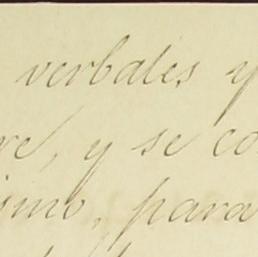 verbales y
re, y se co
imo, para